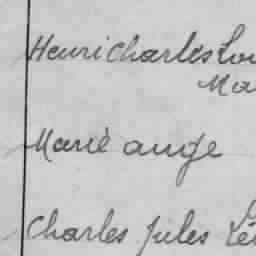 Henri Charles Lou
Ma
Marie ange
Charles Jules Lé